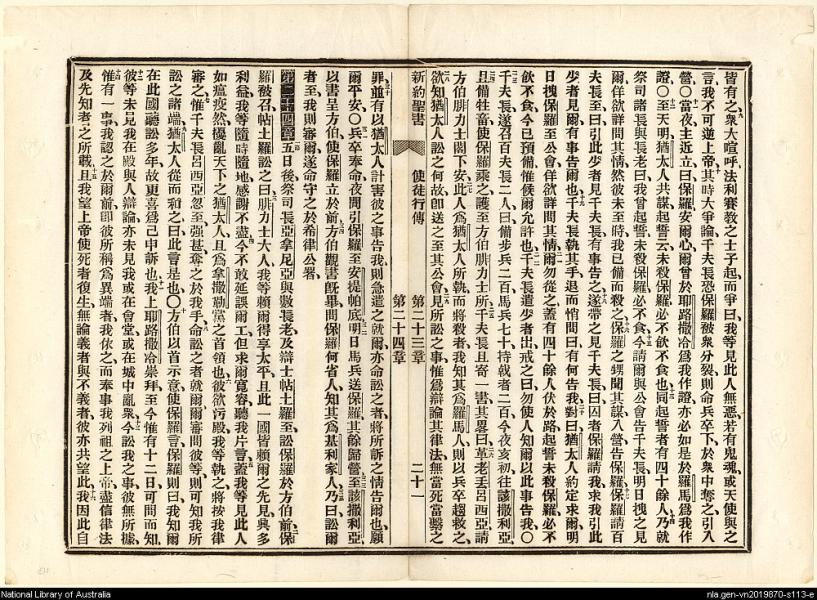 皆有之衆大喧呼法利賽教之士子起而爭曰我等見此人無惡若有鬼魂或天使與之
言我不可逆上帝其時大爭論千夫長恐保羅被衆分裂則命兵卒下於衆中奪之引入
營〇當夜主近立曰保羅安爾心爾曾於耶路撒冷爲我作證亦必如是於羅馬爲我作
證〇至天明猶太人共謀起誓云未殺保羅必不飲不食也同起誓者有四十餘人乃就
祭司諸長與長老曰我曾起誓未殺保羅必不食今請爾與公會告千夫長明日拽之見
爾佯欲詳問其情然彼未至時我已備而殺之保羅之甥聞其謀入營告保羅保羅請百
夫長至曰引此少者見千夫長有事告之遂帶之見千夫長曰囚者保羅請我求我引此
少者見爾有事告爾也千夫長執其手退而悄問曰有何告我對曰猶太人約定求爾明
日拽保羅至公會佯欲詳問其情爾勿從之蓋有四十餘人伏於路起誓未殺保羅必不
飲不食今已預備候爾允許也千夫長遣少者出戒之曰勿使人知爾以此事告我〇
千夫長遂召百夫長二人曰備步兵二百馬兵七十持戟者二百今夜亥初往該撒利亞
且備牲畜使保羅乘之護至方伯腓力士所千夫長且寄一書其畧曰革老丟呂西亞請
方伯腓力士閣下安此人爲猶太人所執而將殺者我知其爲羅馬人則以兵卒趨救之
欲知猶太人訟之何故卽送之至其公會見所訟之事惟爲辯論其律法無當死當繫之
新約聖書 使徒行傳 第二十三章 第二十四章 二十一
罪並有以猶太人計害彼之事告我則急遣之就爾亦命訟之者將所訴之情告爾也願
爾平安〇兵卒奉命夜間引保羅至安提帕底明日馬兵送保羅其餘歸營至該撒利亞
以書呈方伯使保羅立於前方伯觀書旣畢問保羅何省人知其爲基利家人乃曰訟爾
者至我則審爾遂命守之於希律公署
第二十四章五日後祭司長亞拿尼亞與數長老及辯士帖土羅至訟保羅於方伯前保
羅被召帖土羅訟之曰腓力士大人我等賴爾得享太平且此一國皆賴爾之先見興多
利益我等隨時隨地感謝不盡今不敢延誤爾工但求爾寬容聽我片言蓋我等見此人
如瘟疫然擾亂天下之猶太人且爲拿撒勒黨之首領也彼欲污殿我等執之將按我律
審之惟千夫長呂西亞忽至强甚奪之於我手命訟之者就爾爾審問彼等則可知我所
訟之諸端猶太人從而和之曰此言是也〇方伯以首示意使保羅言保羅則曰我知爾
在此國聽訟多年故更喜爲己申訴也我上耶路撒冷崇拜至今惟有十二日可問而知
彼等未見我在殿與人辯論亦未見我或在會堂或在城中亂衆今訟我之事彼無所據
惟有一事我認之於爾前卽彼所稱爲異端者我依之而奉事我列祖之上帝盡信律法
及先知者之所載且我望上帝使死者復生無論義者與不義者彼亦共望此我因此自
National Library of Australia
nla.gen-vn2019870-s113-e